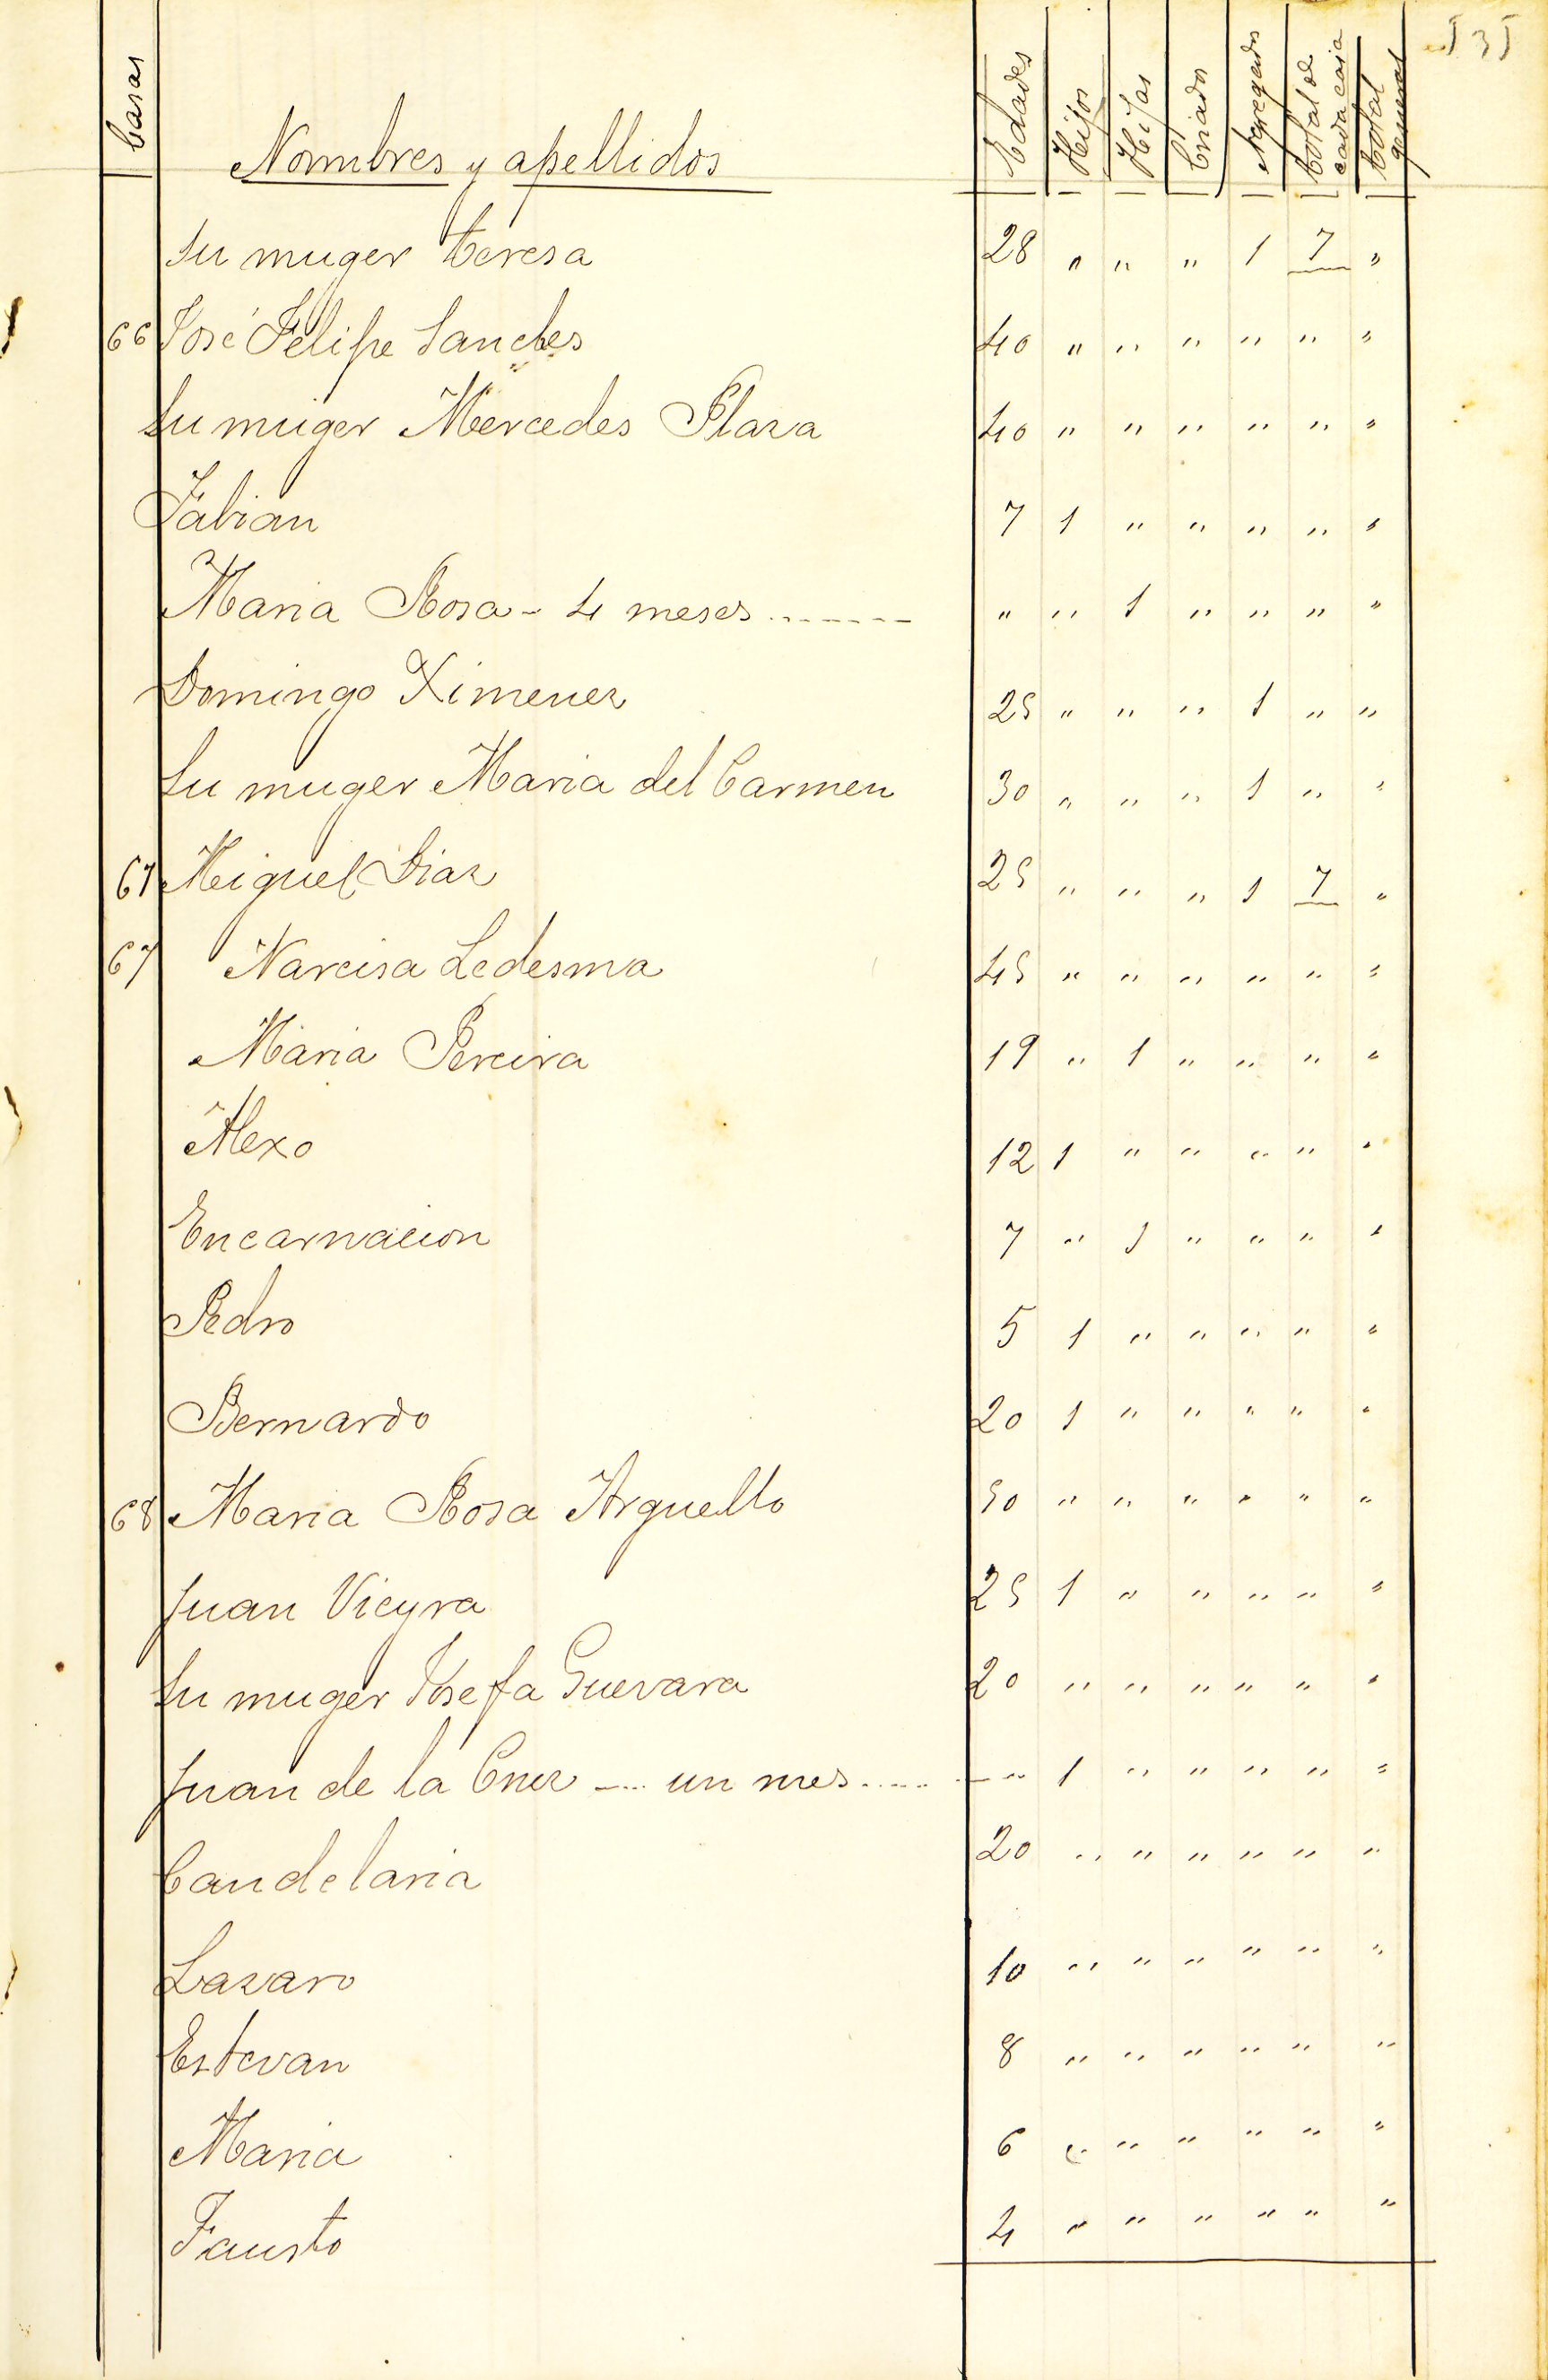 535
Casas Nombres y apellidos Edades Hijos Hijas Criados Agregados total de cada casa total general
Su muger Teresa 28 " " " 1 7 "
66 José Felipe Sanches 40 " " " " " "
Su muger Mercedes Plaza 40 " " " " " "
Fabian 7 1 " " " " "
Maria Rosa - 4 meses ....... " " 1 " " " "
Domingo Ximenez 25 " " " 1 " "
Su muger Maria del Carmen 30 " " " 1 " "
67 Miguel Diaz 25 " " " 1 7 "
67 Narcisa Ledesma 45 " " " " " "
Maria Pereira 19 " 1 " " " "
Alexo 12 1 " " " " "
Encarnacion 7 " 1 " " " "
Pedro 5 1 " " " " "
Bernardo 20 1 " " " " "
68 Maria Rosa Arguello 50 " " " " " "
Juan Vieyra 25 1 " " " " "
Su muger Josefa Guevara 20 " " " " " "
Juan de la Cruz .... un mes ..... " 1 " " " " "
Candelaria 20 " " " " " "
Lazaro 10 " " " " " "
Estevan 8 " " " " " "
Maria 6 " " " " " "
Fausto 4 " " " " " "